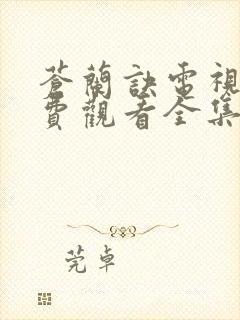 蒼蘭訣電視
費觀看全集
莞卓